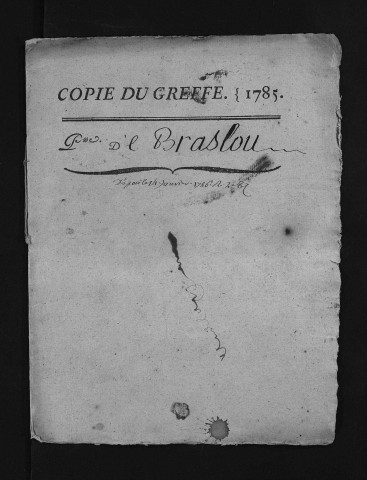 COPIE DU GREFFE. { 1785.
D'e Braslou
Déposé le 14 Janvier 1786